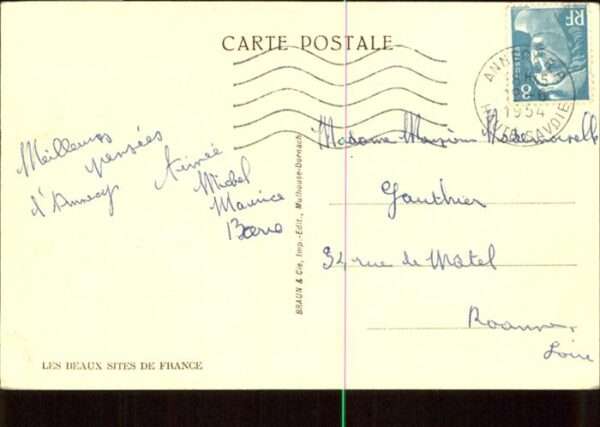 CARTE POSTALE
RF
8
ANNECY
1954
HTE SAVOIE
Meilleures
pensées
d'Annecy
Aimée
Michel
Maurice
Madame Monsieur Mademoiselle
Gauthier
34 rue de Matel
Roanne
Loire
BRAUN & Cie, Imp.-Edit., Mulhouse-Dornach
LES BEAUX SITES DE FRANCE